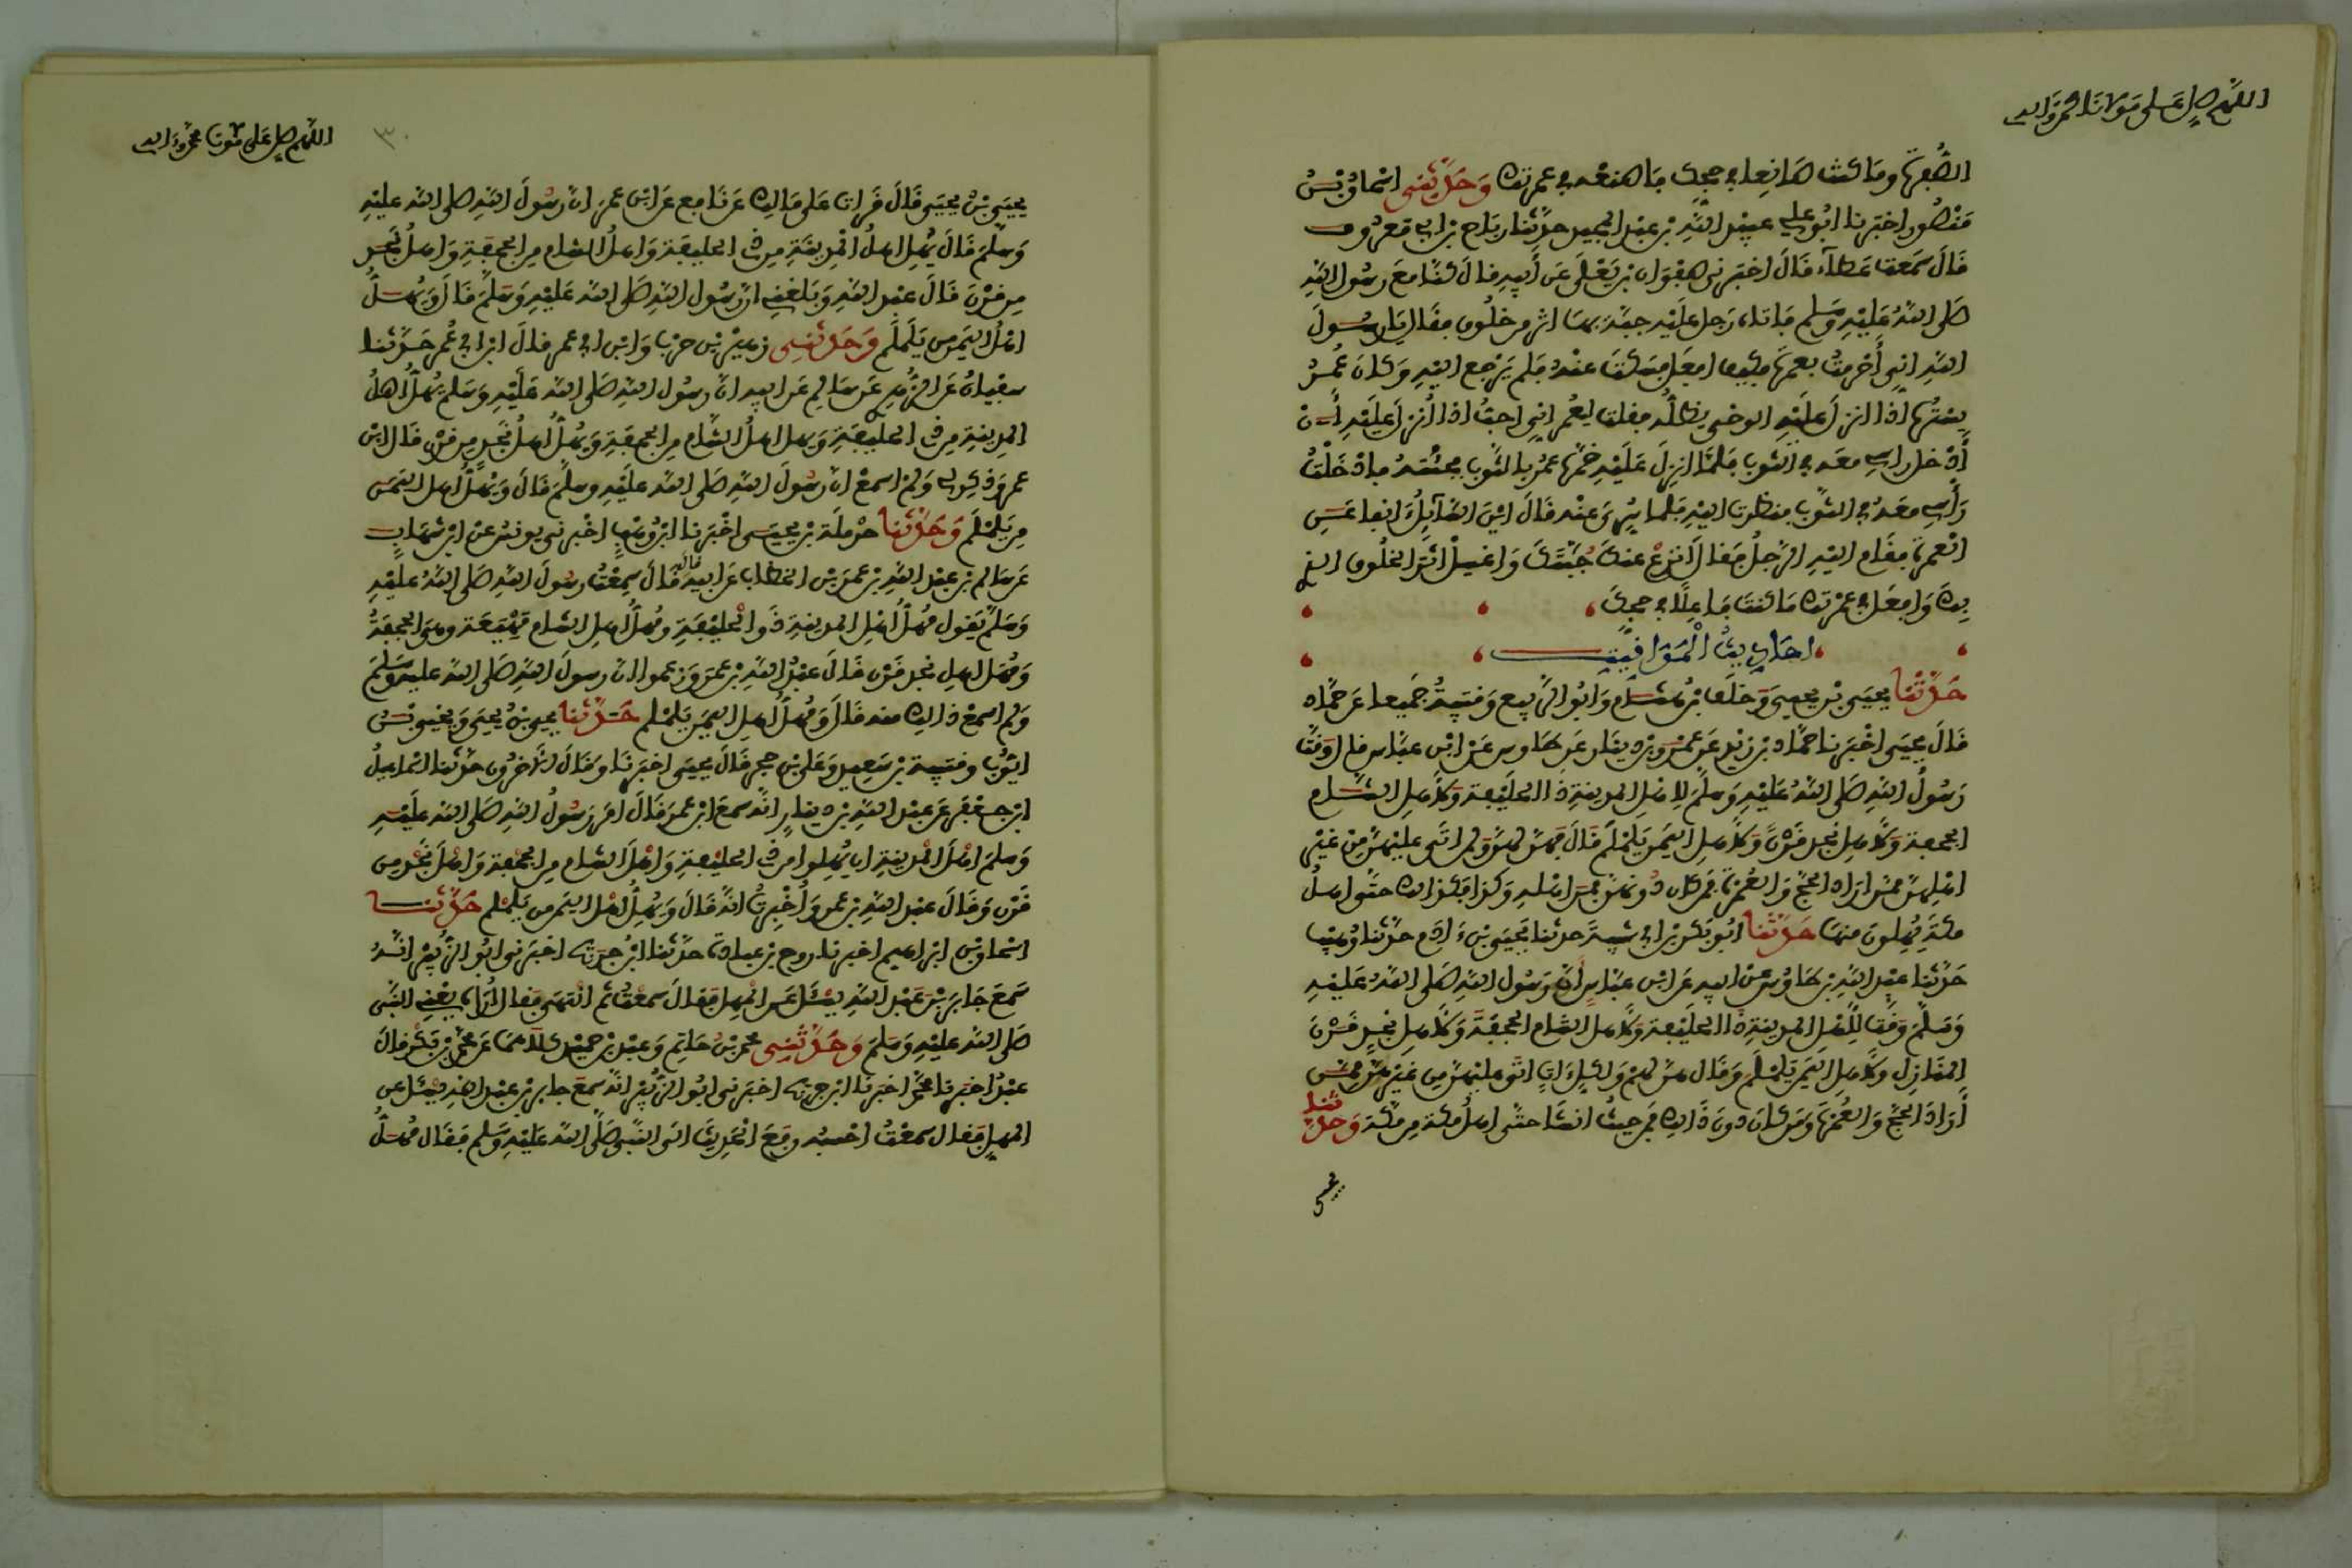 اللهم صل على مولانا محمد وآله
الصفرة وما كنت صانعا في حجك فاصنعه في عمرتك وحدثني اسحاق بن
منصور اخبرنا ابو علي عبيد الله بن عبد المجيد حدثنا رباح بن ابي معروف
قال سمعت عطاء قال اخبرني صفوان بن يعلى عن أبيه قال كنا مع رسول الله
صلى الله عليه وسلم فاتاه رجل عليه جبة بها اثر من خلوق فقال يا رسول
الله اني أحرمت بعمرة فكيف افعل فسكت عنه فلم يرجع اليه وكان عمر
يسترة اذا انزل عليه الوحي يظله فقلت لعمر اني احب اذا انزل عليه أن
أدخل راسي معه في الثوب فلما انزل عليه خمرة عمر بالثوب فجئته فادخلت
رأسي معه في الثوب فنظرت اليه فلما سري عنه قال اين السائل انفا عن
العمرة فقام اليه الرجل فقال انزع عنك جبتك واغسل اثر الخلوق الذي
بك وافعل في عمرتك ما كنت فاعلا في حجك
احاديث المواقيت
حدثنا يحيى بن يحيى وخلف بن هشام وابو الربيع وقتيبة جميعا عن حماد
قال يحيى اخبرنا حماد بن زيد عن عمرو بن دينار عن طاوس عن ابن عباس قال وقت
رسول الله صلى الله عليه وسلم لاهل المدينة ذا الحليفة ولاهل الشام
الجحفة ولاهل نجد قرن ولاهل اليمن يلملم قال فهن لهن ولمن اتى عليهن من غير
اهلهن ممن اراد الحج والعمرة فمن كان دونهن فمن اهله وكذا فكذالك حتى اهل
مكة يهلون منها حدثنا ابو بكر بن ابي شيبة حدثنا يحيى بن ءادم حدثنا وهيب
حدثنا عبد الله بن طاوس عن ابيه عن ابن عباس أن رسول الله صلى الله عليه
وسلم وقت لاهل المدينة ذا الحليفة ولاهل الشام الجحفة ولاهل نجد قرن
المنازل ولاهل اليمن يلملم وقال هن لهم ولكل ءات اتى عليهن من غيرهن ممن
أراد الحج والعمرة ومن كان دون ذالك فمن حيث انشا حتى اهل مكة من مكة وحدثنا
يحيى
اللهم صل على مولانا محمد وءاله
٣٠
يحيى بن يحيى قال قرات على مالك عن نافع عن ابن عمر ان رسول الله صلى الله عليه
وسلم قال يهل اهل المدينة من ذي الحليفة واهل الشام من الجحفة واهل نجد
من قرن قال عبد الله وبلغني ان رسول الله صلى الله عليه وسلم قال ويهل
اهل اليمن من يلملم وحدثني زهير بن حرب وابن ابي عمر قال ابن ابي عمر حدثنا
سفيان عن الزهري عن سالم عن ابيه ان رسول الله صلى الله عليه وسلم يهل اهل
المدينة من ذي الحليفة ويهل اهل الشام من الجحفة ويهل اهل نجد من قرن قال ابن
عمر وذكر لي ولم اسمع ان رسول الله صلى الله عليه وسلم قال ويهل اهل اليمن
من يلملم وحدثنا حرملة بن يحيى اخبرنا ابن وهب اخبرني يونس عن ابن شهاب
عن سالم بن عبد الله بن عمر بن الخطاب عن ابيه قال سمعت رسول الله صلى الله عليه
وسلم يقول مهل اهل المدينة ذو الحليفة ومهل اهل الشام مهيعة وهي الجحفة
ومهل اهل نجد قرن قال عبد الله بن عمر وزعموا ان رسول الله صلى الله عليه وسلم
ولم اسمع ذالك منه قال ومهل اهل اليمن يلملم حدثنا يحيى بن يحيى ويحيى بن
ايوب وقتيبة بن سعيد وعلي بن حجر قال يحيى اخبرنا وقال الآخرون حدثنا اسماعيل
ابن جعفر عن عبد الله بن دينار انه سمع ابن عمر قال امر رسول الله صلى الله عليه
وسلم اهل المدينة ان يهلوا من ذي الحليفة واهل الشام من الجحفة واهل نجد من
قرن وقال عبد الله بن عمر وأخبرت انه قال ويهل اهل اليمن من يلملم حدثنا
اسحاق بن ابراهيم اخبرنا روح بن عبادة حدثنا ابن جريج اخبرني ابو الزبير انه
سمع جابر بن عبد الله يسئل عن المهل فقال سمعت ثم انتهى فقال أراه يعني النبي
صلى الله عليه وسلم وحدثني محمد بن حاتم وعبد بن حميد كلاهما عن محمد بن بكر قال
عبد اخبرنا محمد اخبرنا ابن جريج اخبرني ابو الزبير انه سمع جابر بن عبد الله يسئل عن
المهل فقال سمعت احسبه رفع الحديث الى النبي صلى الله عليه وسلم فقال مهل